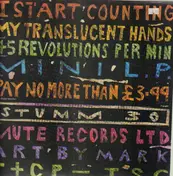 I START COUNTING
MY TRANSLUCENT HANDS
45 REVOLUTIONS PER MIN
MINI L.P
PAY NO MORE THAN £3.99
STUMM 30
MUTE RECORDS LTD
ART BY MARK